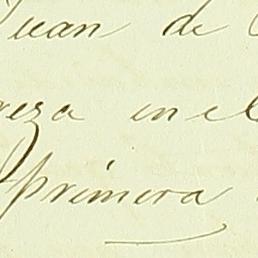 Juan de
reza en el
primera